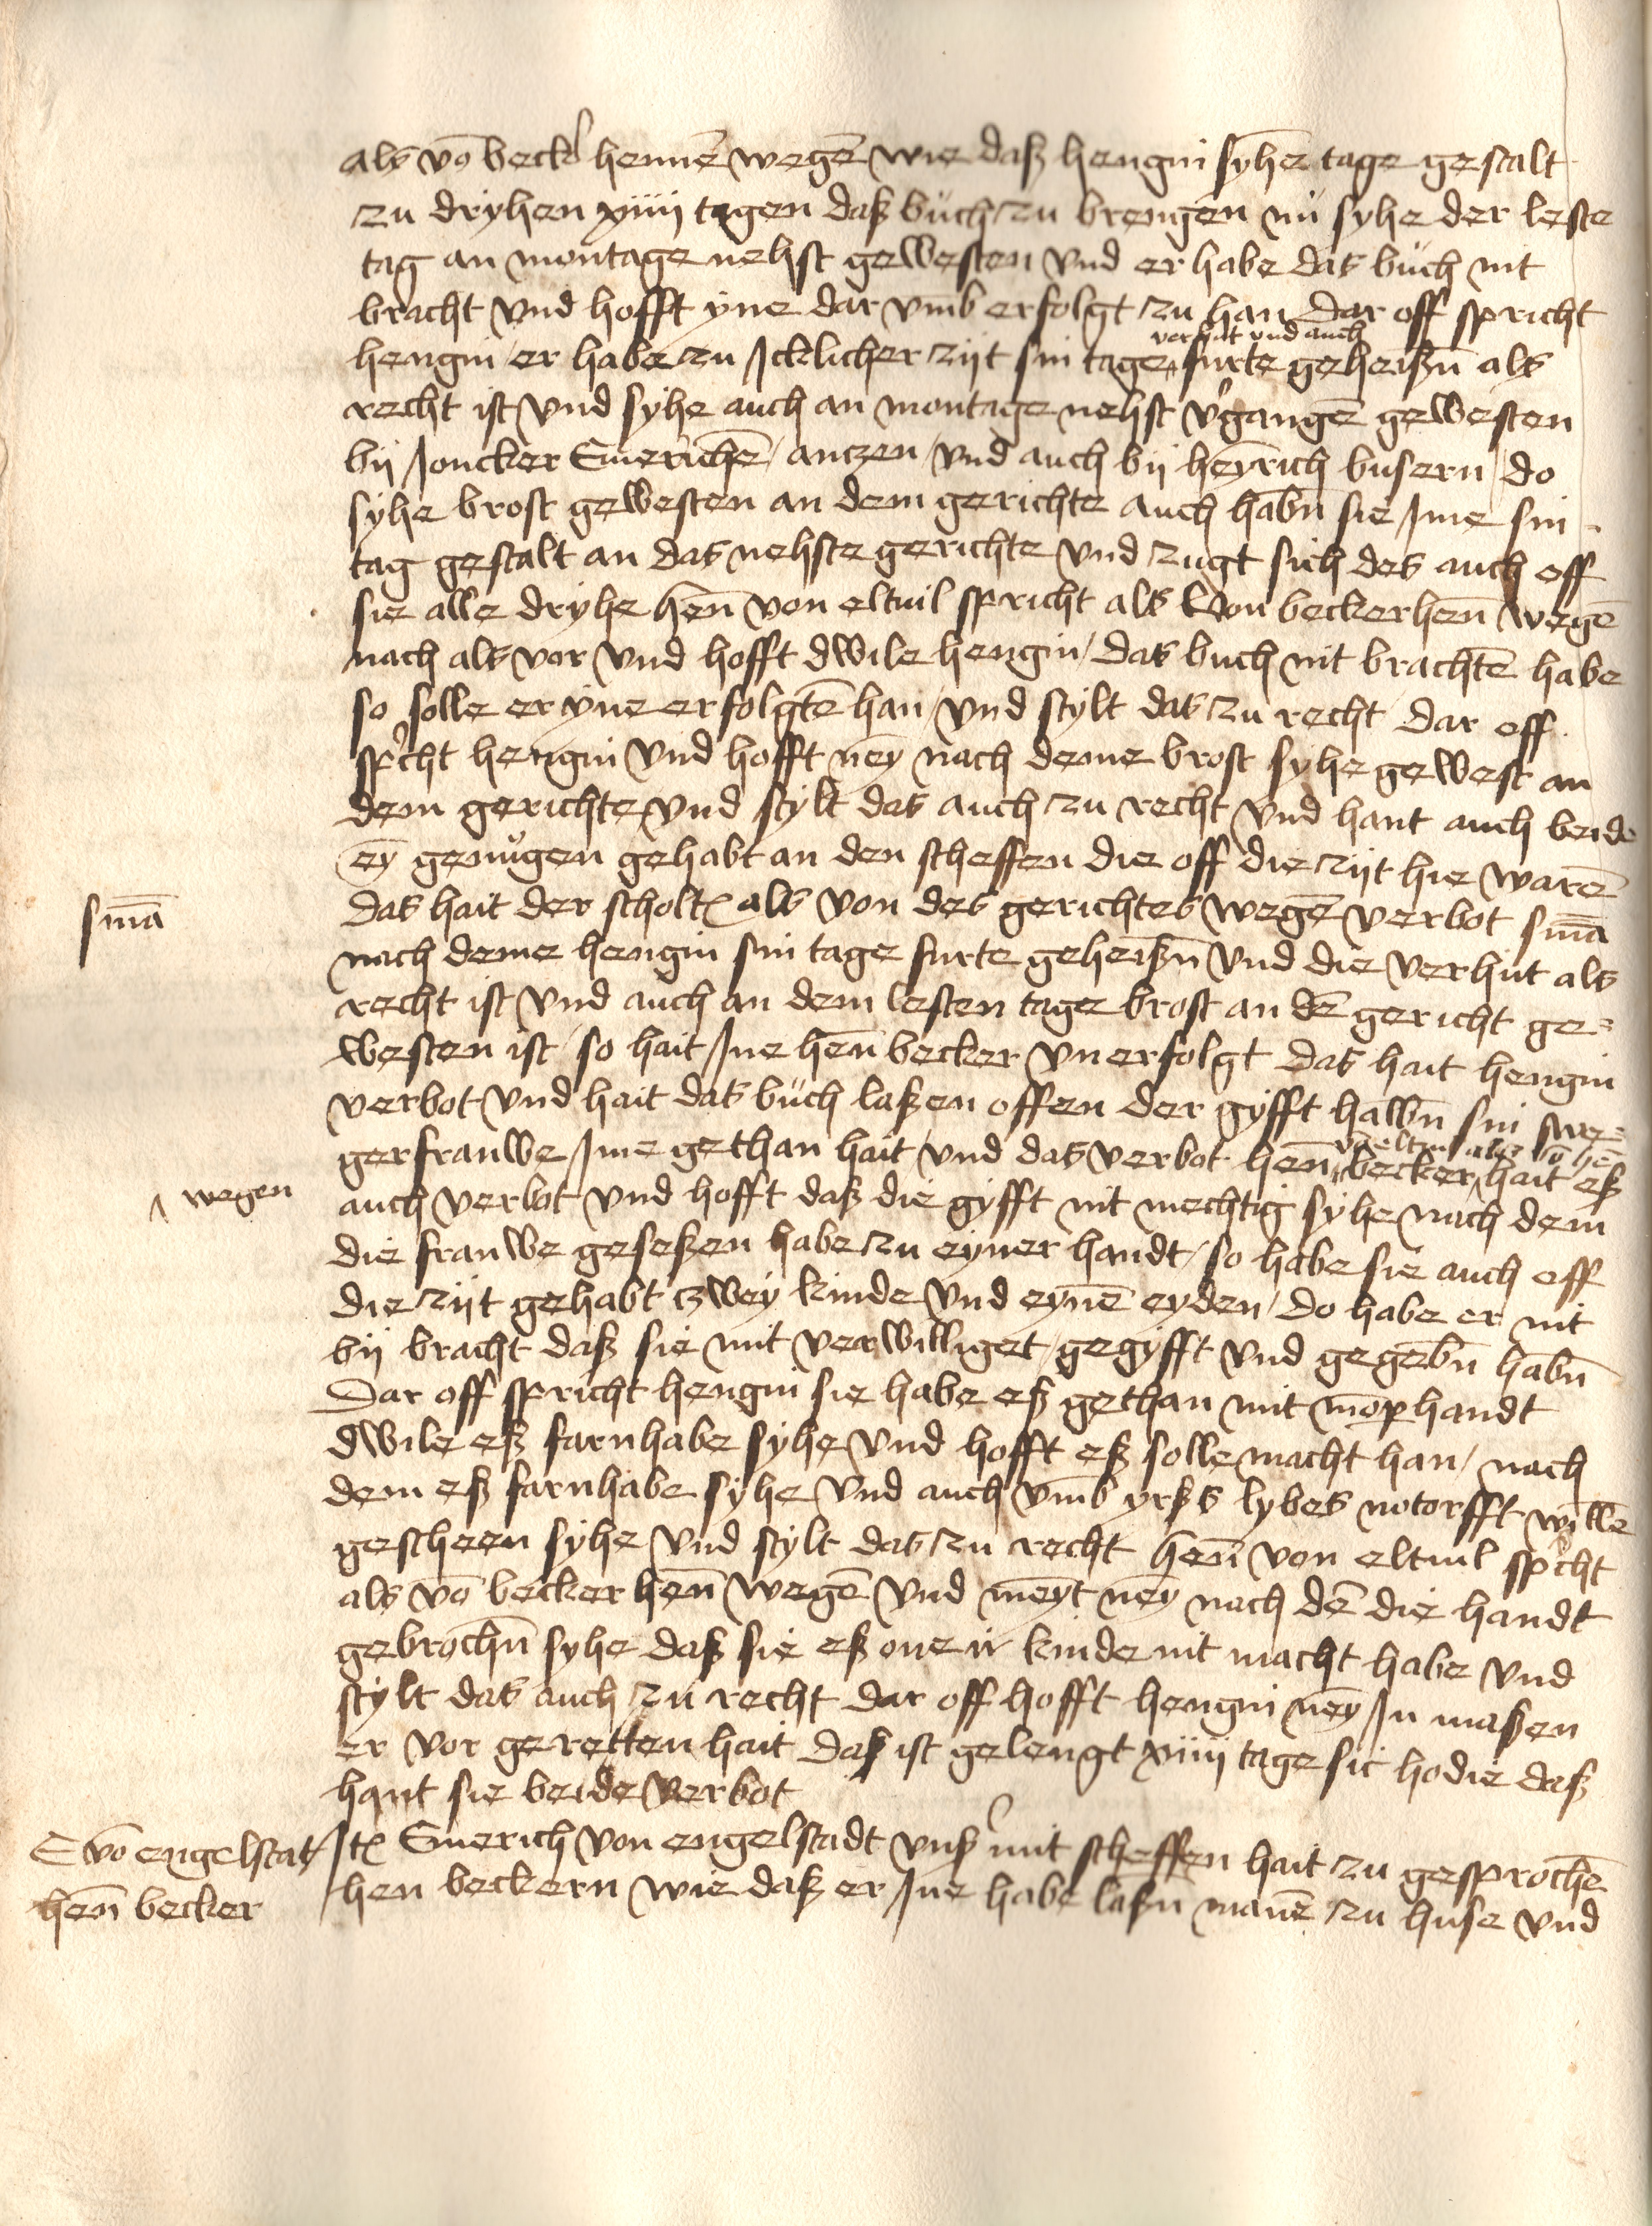 als vō becker hennē wegē wie daß hengin syhē tage gestalt
zu dryhen xiiii tagen daß buch zu brengen nů syhe der leste
tag an montage nehst gewesten vnd er habe das bůch nit
bracht vnd hofft yne dar vmb erfolgt zu han dar off spricht
verhůt vnd auch
hengin er habe zu Icklicher zijt sin tage furte geheißn̄ als
recht ist vnd syhe auch an montage nehst v'gangē gewesten
bij Joncker Emerichē antzen vnd auch bij heyrich busern do
syhe brost gewesten an dem gerichte auch habn̄ sie Ime sin
tag gestalt an das nehste gerichte vnd zugt sich des auch off
sie alle dryhe hen̄ von eltuil spricht als von beckerhen̄ wegē
nach als vor vnd hofft dwile hengin das buch nit brachtē habe
so solle er yne erfolgtē han vnd stylt das zu recht dar off
sp'cht hengin vnd hofft ney nach deme brost syhe gewest an
dem gerichte vnd stylt das auch zu recht vnd hant auch beide
ey genůgen gehabt an den scheffen die off die zijt hie warē
smā
das hait der scholt als von des gerichtes wegē verbot smā
nach deme hengin sin tage furte geheißn̄ vnd die verhut als
recht ist vnd auch an dem lesten tage brost an dē gericht ge=
westen ist so hait Ine hen̄ becker vnerfolgt das hait hengin
verbot vnd hait das bůch laßen offen der gyfft halbn̄ sin swe=
gerfrauwe Ime gethan hait vnd das verbot hen̄ becker hait eß
wegen
auch verbot vnd hofft daß die gyfft nit mechtig syhe nach dem
die frauwe geseßen habe zu eyner handt so habe sie auch off
die zijt gehabt zwey kinde vnd eynē eyden do habe er nit
bij bracht daß sie mit verwilliget gegyfft vnd gegebn̄ habn̄
Dar off spricht hengin sie habe eß gethan mit handt
dwile eß farnhabe syhe vnd hofft eß solle macht han nach
dem eß farnhabe syhe vnd auch vmb yrßs lybes notorfft willē
gescheen syhe vnd stylt das zu recht hen̄ von eltuil sp'cht
als vō becker hen̄ wegē vnd meyt ney nach dē die handt
gebrochn̄ syhe daß sie eß one ir kinde nit macht habe vnd
stylt das auch zu recht dar off hofft hengin ney In maßen
er vor geretten hait daß ist gelengt xiiii tage sic hodie daß
hant sie beide verbot
E vō engelstat
hen̄ becker
Itē Emerich von engelstadt vnß' mit scheffen hait zu gesprochē
hen beckern wie daß er Ine habe laßn̄ manē zu huse vnd